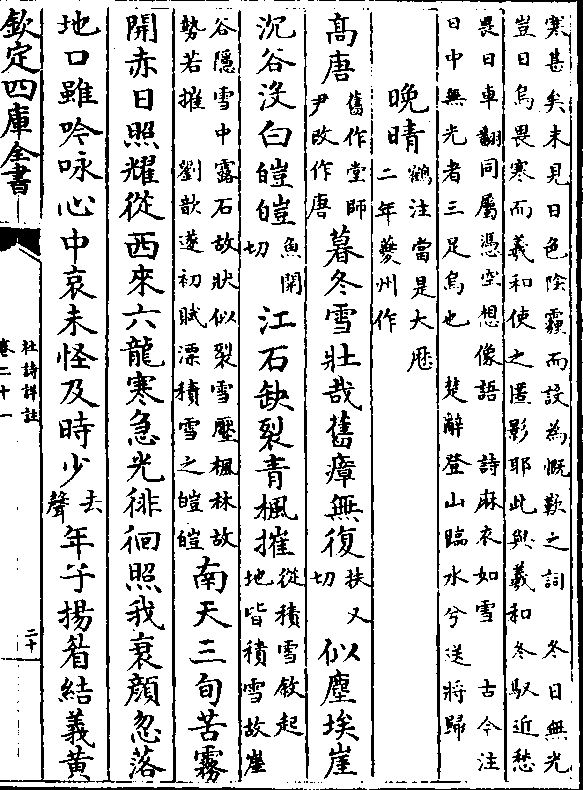 寒甚矣未見日色陰霾而設為慨歎之詞　冬日無光
豈日烏畏寒而羲和使之匿影耶此與羲和冬馭近愁
畏日車翻同屬憑空想像語　詩麻衣如雪　古今注
日中無光者三足烏也　楚辭登山臨水兮送將歸
晚晴
鶴注當是大厯
二年夔州作
高唐
舊作堂師
尹改作唐
暮冬雪壯哉舊瘴無復
扶又
切
似塵埃崖
沉谷沒白皚皚
魚開
切
江石缺裂青楓摧
從積雪敘起
地皆積雪故崖
谷隱雪中露石故狀似裂雪壓楓林故
勢若摧　劉歆遂初賦漂積雪之皚皚
南天三旬苦霧
開赤日照耀從西來六龍寒急光徘徊照我衰顏忽落
地口雖吟咏心中哀未怪及時少
去
聲
年子揚眉結義黃
欽定四庫全書
杜詩詳註
卷二十一
二十